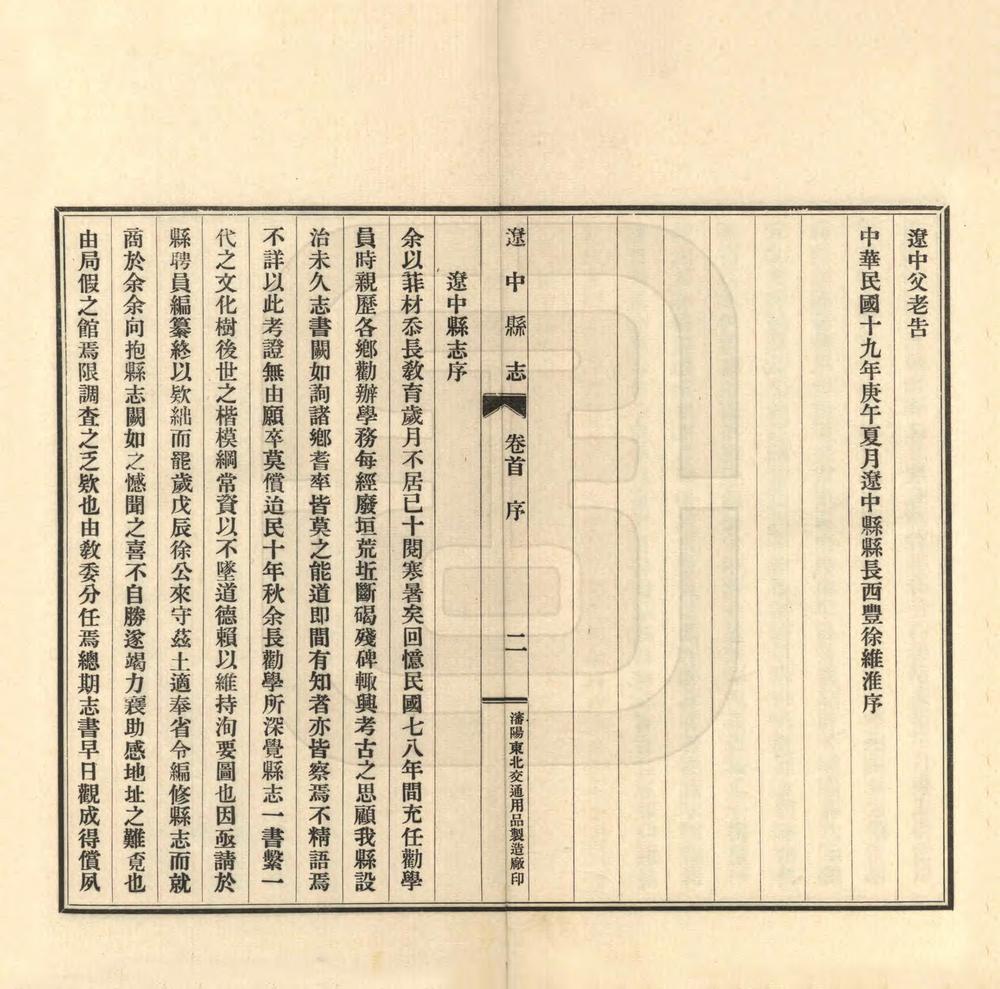 遼中父老吿
中華民國十九年庚午夏月遼中縣縣長西豐徐維淮序
遼中縣志 卷首 序 二 瀋陽東北交通用品製造廠印
遼中縣志序
余以菲材忝長敎育歲月不居已十閱寒暑矣回憶民國七八年間充任勸學
員時親歷各鄉勸辦學務每經廢垣荒坵斷碣殘碑輙興考古之思顧我縣設
治未久志書闕如詢諸鄉耆率皆莫之能道即間有知者亦皆察焉不精語焉
不詳以此考證無由願卒莫償迨民十年秋余長勸學所深覺縣志一書繫一
代之文化樹後世之楷模綱常資以不墜道德賴以維持洵要圖也因亟請於
縣聘員編纂終以欵絀而罷歲戊辰徐公來守茲土適奉省令編修縣志而就
商於余余向抱縣志闕如之憾聞之喜不自勝遂竭力襄助感地址之難覔也
由局假之館焉限調査之乏欵也由敎委分任焉總期志書早日觀成得償夙